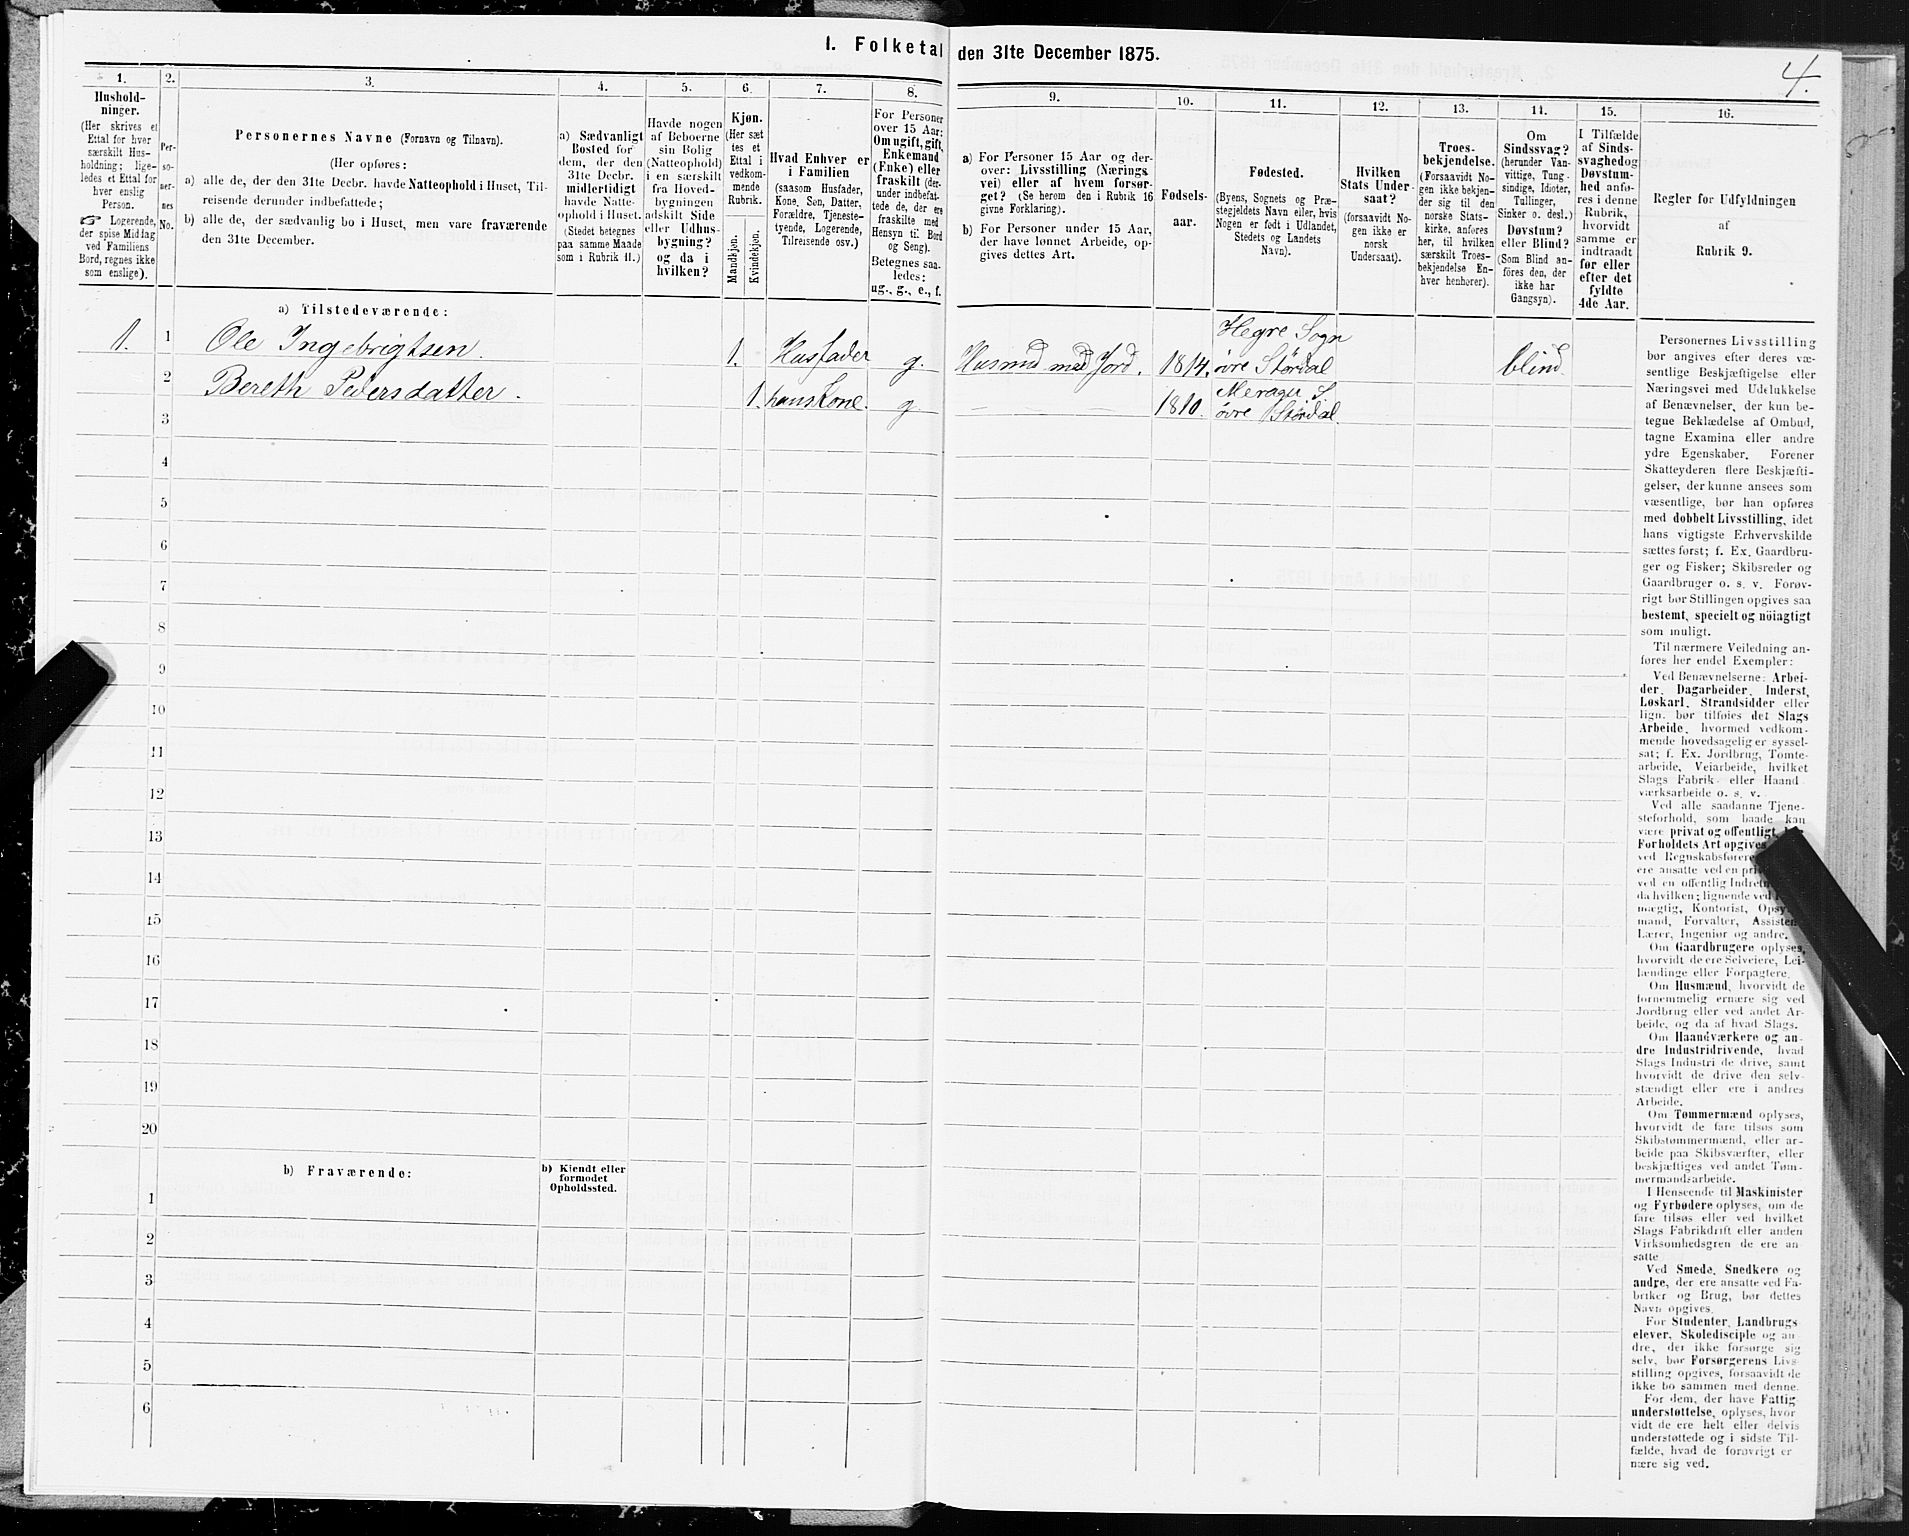 1. Folketal den 31te December 1875.
4.
1.
Hushold-
ninger.
(Her skrives et
Ettal for hver
særskilt Hus-
holdning; lige-
ledes et Ettal for
hver enslig
Person.
☞ Logerende,
der spise Middag
ved Familiens
Bord, regnes ikke
som enslige).
2.
Per-
so-
ner-
nes
No.
3.
Personernes Navne (Fornavn og Tilnavn).
(Her opføres:
a) alle de, der den 31te Decbr. havde Natteophold i Huset, Til-
reisende derunder indbefattede;
b) alle de, der sædvanlig bo i Huset, men vare fraværende
den 31te December.
4.
a) Sædvanligt
Bosted for
dem, der den
31te Decbr.
midlertidigt
havde Natte-
ophold i Huset.
(Stedet betegnes
paa samme Maade
som i Rubrik 11.)
5.
Havde nogen
af Beboerne
sin Bolig
(Natteophold)
i en særskilt
fra Hoved-
bygningen
adskilt Side
eller Udhus-
bygning?
og da i
hvilken?
6.
Kjøn.
(Her sæt
tes et
Ettal i
vedkom-
mende
Rubrik.
Mandkjøn.
Kvindekjøn.
7.
Hvad Enhver er
i Familien
(saasom Husfader,
Kone, Søn, Datter,
Forældre, Tjeneste-
tyende, Logerende,
Tilreisende osv.)
8.
For Personer
over 15 Aar:
Om ugift, gift,
Enkemand
(Enke) eller
fraskilt (der-
under indbefat-
tede de, der ere
fraskilte med
Hensyn til Bord
og Seng).
Betegnes saa-
ledes:
ug., g., e., f.
9.
a) For Personer 15 Aar og der-
over: Livsstilling (Nærings
vei) eller af hvem forsør-
get? (Se herom den i Rubrik 16
givne Forklaring).
b) For Personer under 15 Aar,
der have lønnet Arbeide, op-
gives dettes Art.
10.
Fødsels-
aar.
11.
Fødested.
(Byens, Sognets og Præ-
stegjeldets Navn eller, hvis
Nogen er født i Udlandet,
Stedets og Landets
Navn).
12.
Hvilken
Stats Under-
saat?
(forsaavidt No-
gen ikke er
norsk
Undersaat).
13.
Troes-
bekjendelse.
(Forsaavidt No-
gen ikke bekjen-
der sig til den
norske Stats-
kirke, anføres
her, til hvilken
særskilt Troes-
bekjendelse En-
hver henhører).
14.
Om
Sindssvag?
(herunder Van-
vittige, Tung-
sindige, Idioter,
Tullinger,
Sinker o. desl.)
Døvstum?
eller Blind?
(Som Blind an-
føres den, der
ikke har
Gangsyn).
15.
I Tilfælde
af Sinds-
svaghedog
Døvstum-
hed anfø-
res i denne
Rubrik,
hvorvidt
samme er
indtraadt
før eller
efter det
fyldte
4de Aar.
16.
Regler for Udfyldningen
af
Rubrik 9.
a) Tilstedeværende:
1. 1 Ole Ingebrigtsen. 1. Husfader g. Husmd med Jord. 1814. Hegre Sogn
øvre Størdal blind
2 Bereth Pedersdatter. 1. hans Kone. g. — — 1810. Meragu. S.
øvre Størdal.
3
4
5
6
7
8
9
10
11
12
13
14
15
16
17
18
19
20
b) Fraværende:
b) Kjendt eller
formodet
Opholdssted.
1
2
3
4
5
6
Personernes Livsstilling
bør angives efter deres væ-
sentlige Beskjæftigelse eller
Næringsvei med Udelukkelse
af Benævnelser, der kun be-
tegne Beklædelse af Ombud,
tagne Examina eller andre
ydre Egenskaber. Forener
Skatteyderen flere Beskjæfti-
gelser, der kunne ansees som
væsentlige, bør han opføres
med dobbelt Livsstilling, idet
hans vigtigste Erhvervskilde
sættes først; f. Ex. Gaardbru-
ger og Fisker; Skibsreder og
Gaardbruger o. s. v. Forøv-
rigt bør Stillingen opgives saa
bestemt, specielt og nöiagtigt
som muligt.
Til nærmere Veiledning an-
føres her endel Exempler:
Ved Benævnelserne: Arbei-
der, Dagarbeider, Inderst,
Løskarl, Strandsidder eller
lign. bør tilføies det Slags
Arbeide, hvormed vedkom-
mende hovedsagelig er syssel-
sat; f. Ex. Jordbrug, Tomte-
arbeide, Veiarbeide, hvilket
Slags Fabrik- eller Haand-
værksarbeide o. s. v.
Ved alle saadanne Tjene-
steforhold, som baade kan
være privat og offentligt,
Forholdets Art opgives
ved Regnskabsførere
ere ansatte ved en
ved en offentlig
da hvilken; lignende ved
mægtig, Kontorist,
mand, Forvalter,
Lærer, Ingeniør og andre.
Om Gaardbrugere oplyses,
hvorvidt de ere Selveiere, Lei-
lændinge eller Forpagtere.
Om Husmænd, hvorvidt de
fornemmelig ernære sig ved
Jordbrug eller ved andet Ar-
beide, og da af hvad Slags.
Om Haandværkere og an-
dre Industridrivende, hvad
Slags Industri de drive, samt
hvorvidt de drive den selv-
stændigt eller ere i andres
Arbeide.
Om Tømmermænd oplyses,
hvorvidt de fare tilsøs som
Skibstømmermænd, eller ar-
beide paa Skibsværfter, eller
beskjæftiges ved andet Tøm-
mermandsarbeide.
I Henseende til Maskinister
og Fyrbødere oplyses, om de
fare tilsøs eller ved hvilket
Slags Fabrikdrift eller anden
Virksomhedsgren de ere an-
satte
Ved Smede, Snedkere og
andre, der ere ansatte ved Fa-
briker og Brug, bør dettes
Navn opgives.
For Studenter, Landbrugs
elever, Skoledisciple og an
dre, der ikke forsørge sig
selv, bør Forsørgerens Livs-
stilling opgives, forsaavidt de
ikke bo sammen med denne.
For dem, der have Fattig
understøttelse, oplyses, hvor
vidt de ere helt eller delvis
understøttede og i sidste Til-
fælde, hvad de forøvrigt er
nære sig ved.